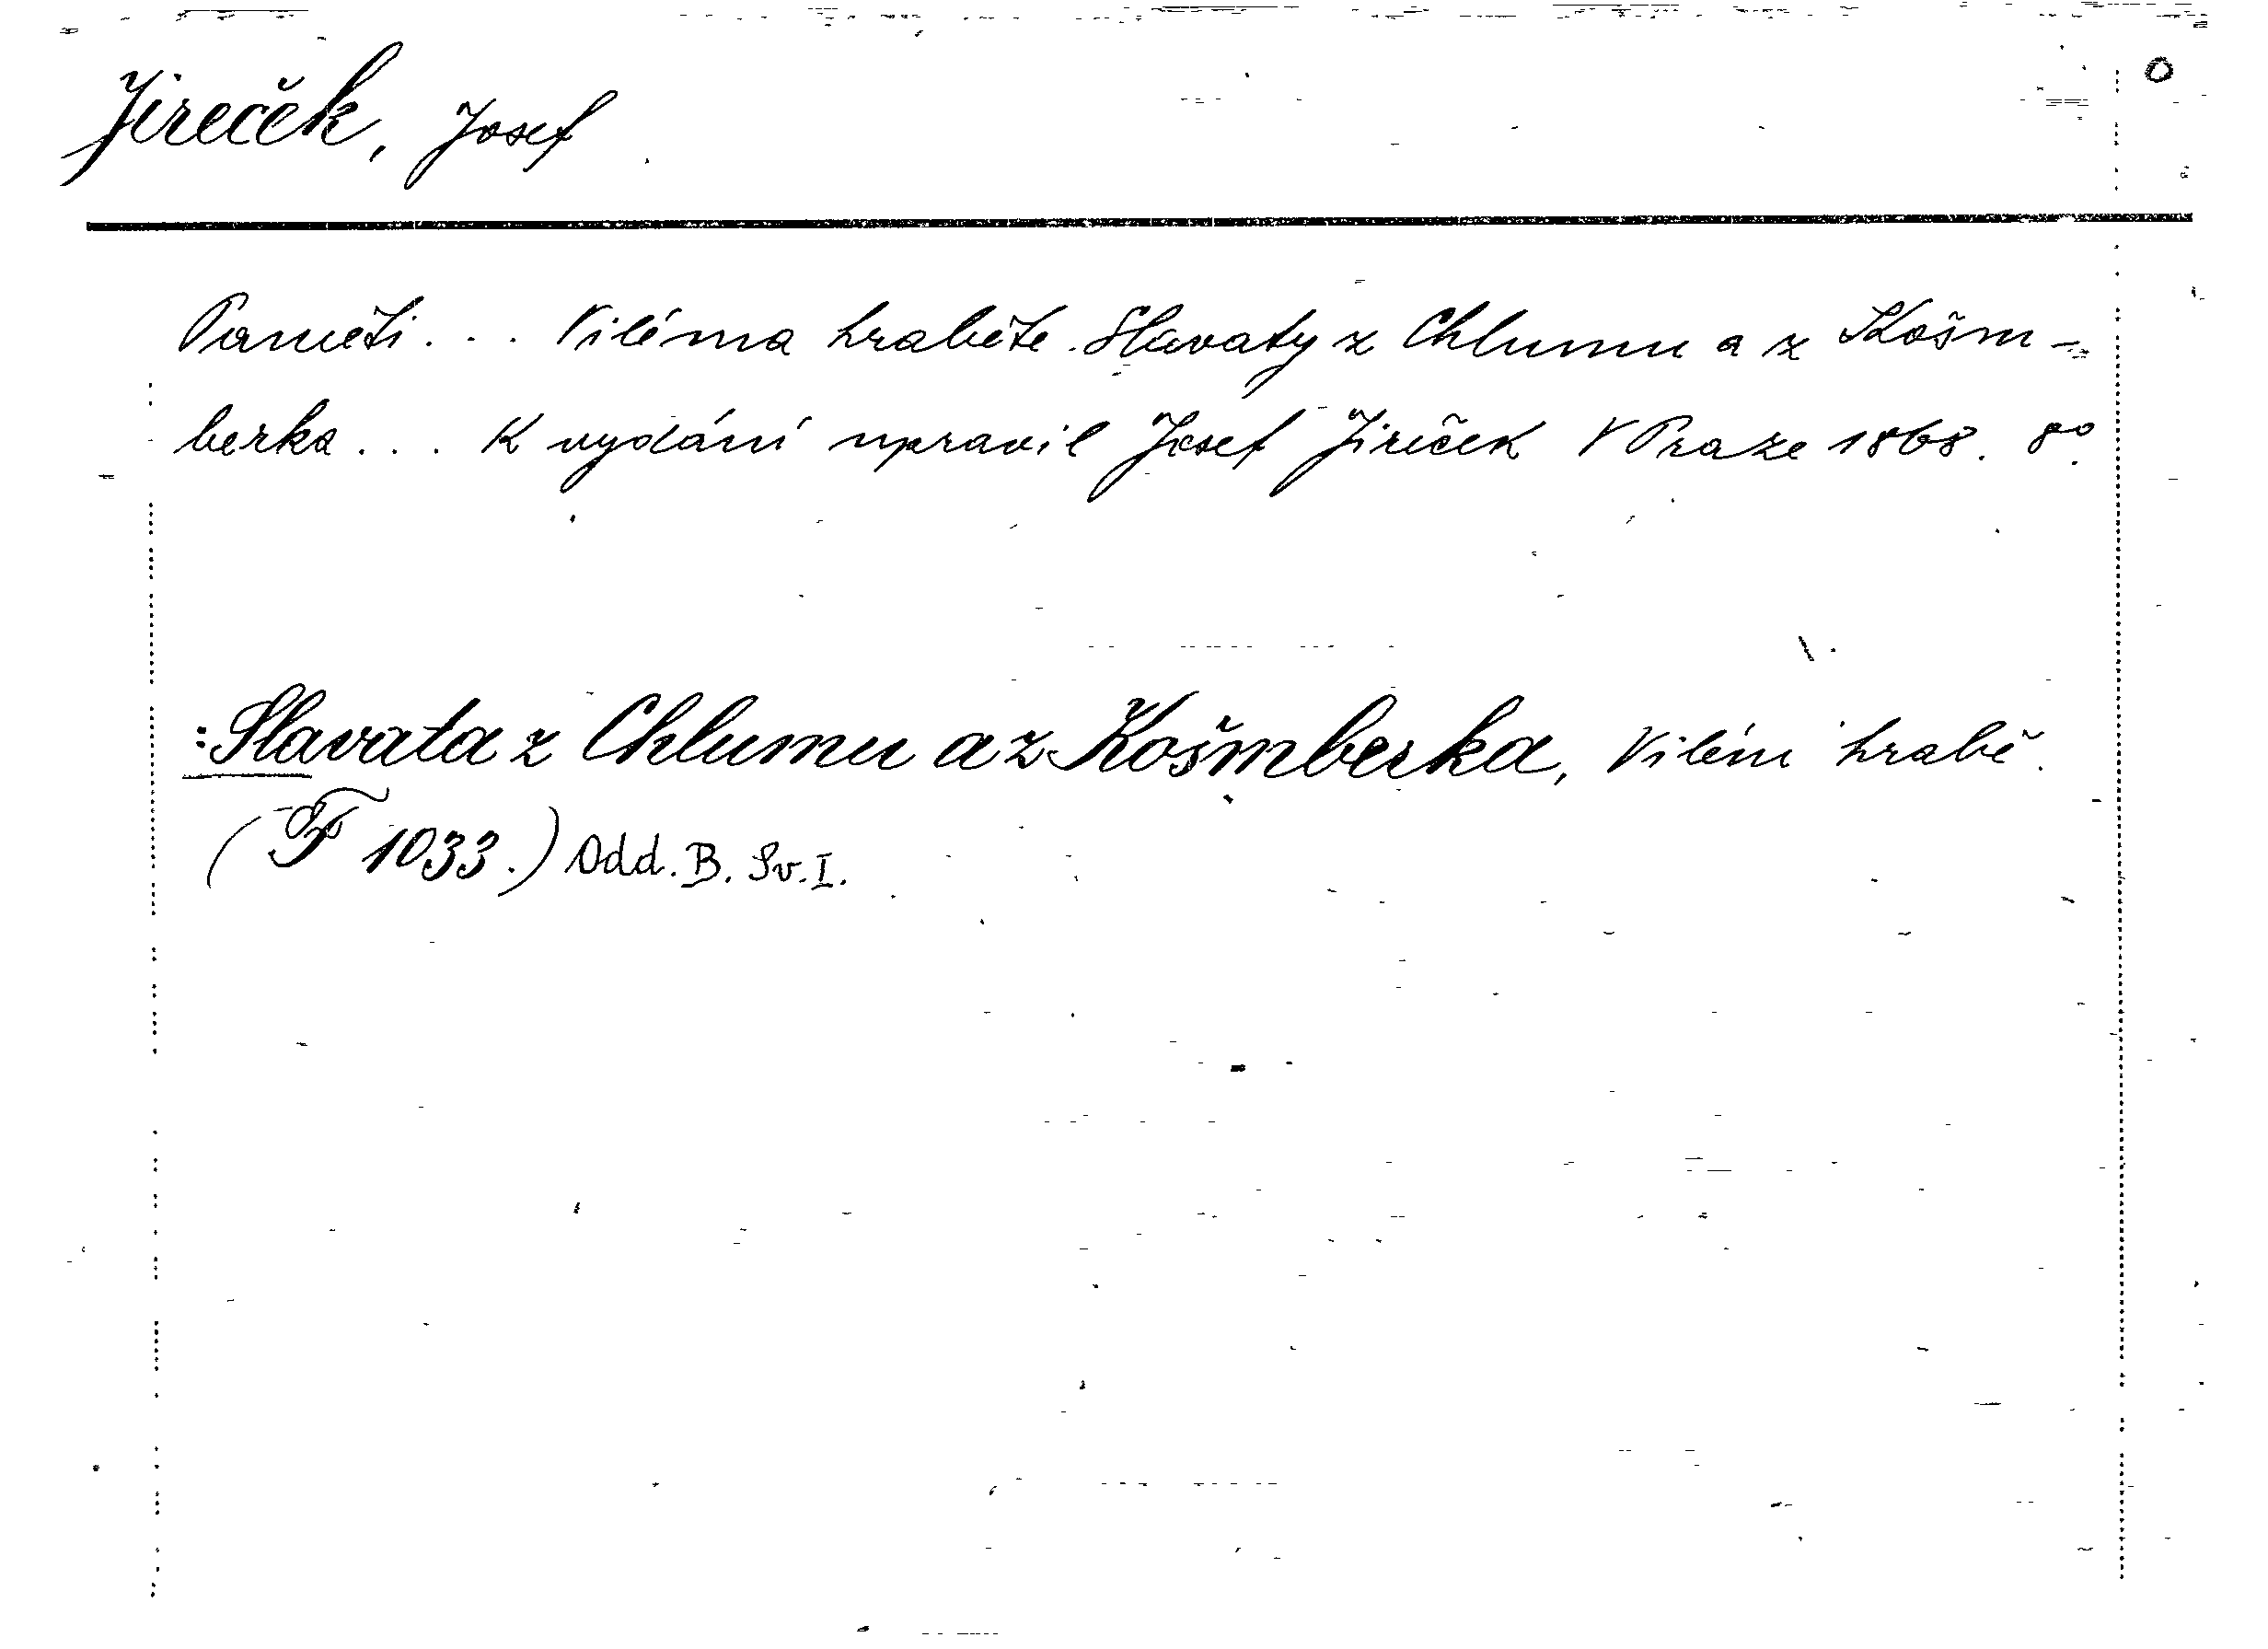 Jireček, Josef
Paměti... Viléma hraběte Slavaty z Chlumu a z Košm-
berka... K vydání upravil Josef Jireček V Praze 1868. 8°.
:Slavata z Chlumu a z Košmberka, Vilém hrabě.
(F 1033.) Odd. B. Sv. I.